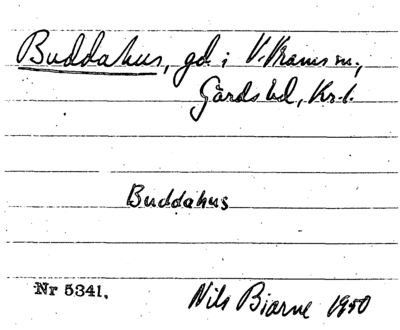 Buddahus, gd i V. Vrams sn.,
Gärds hd, Kr. l.
Buddahus
Nr 5341.
Nils Bjarne 1950